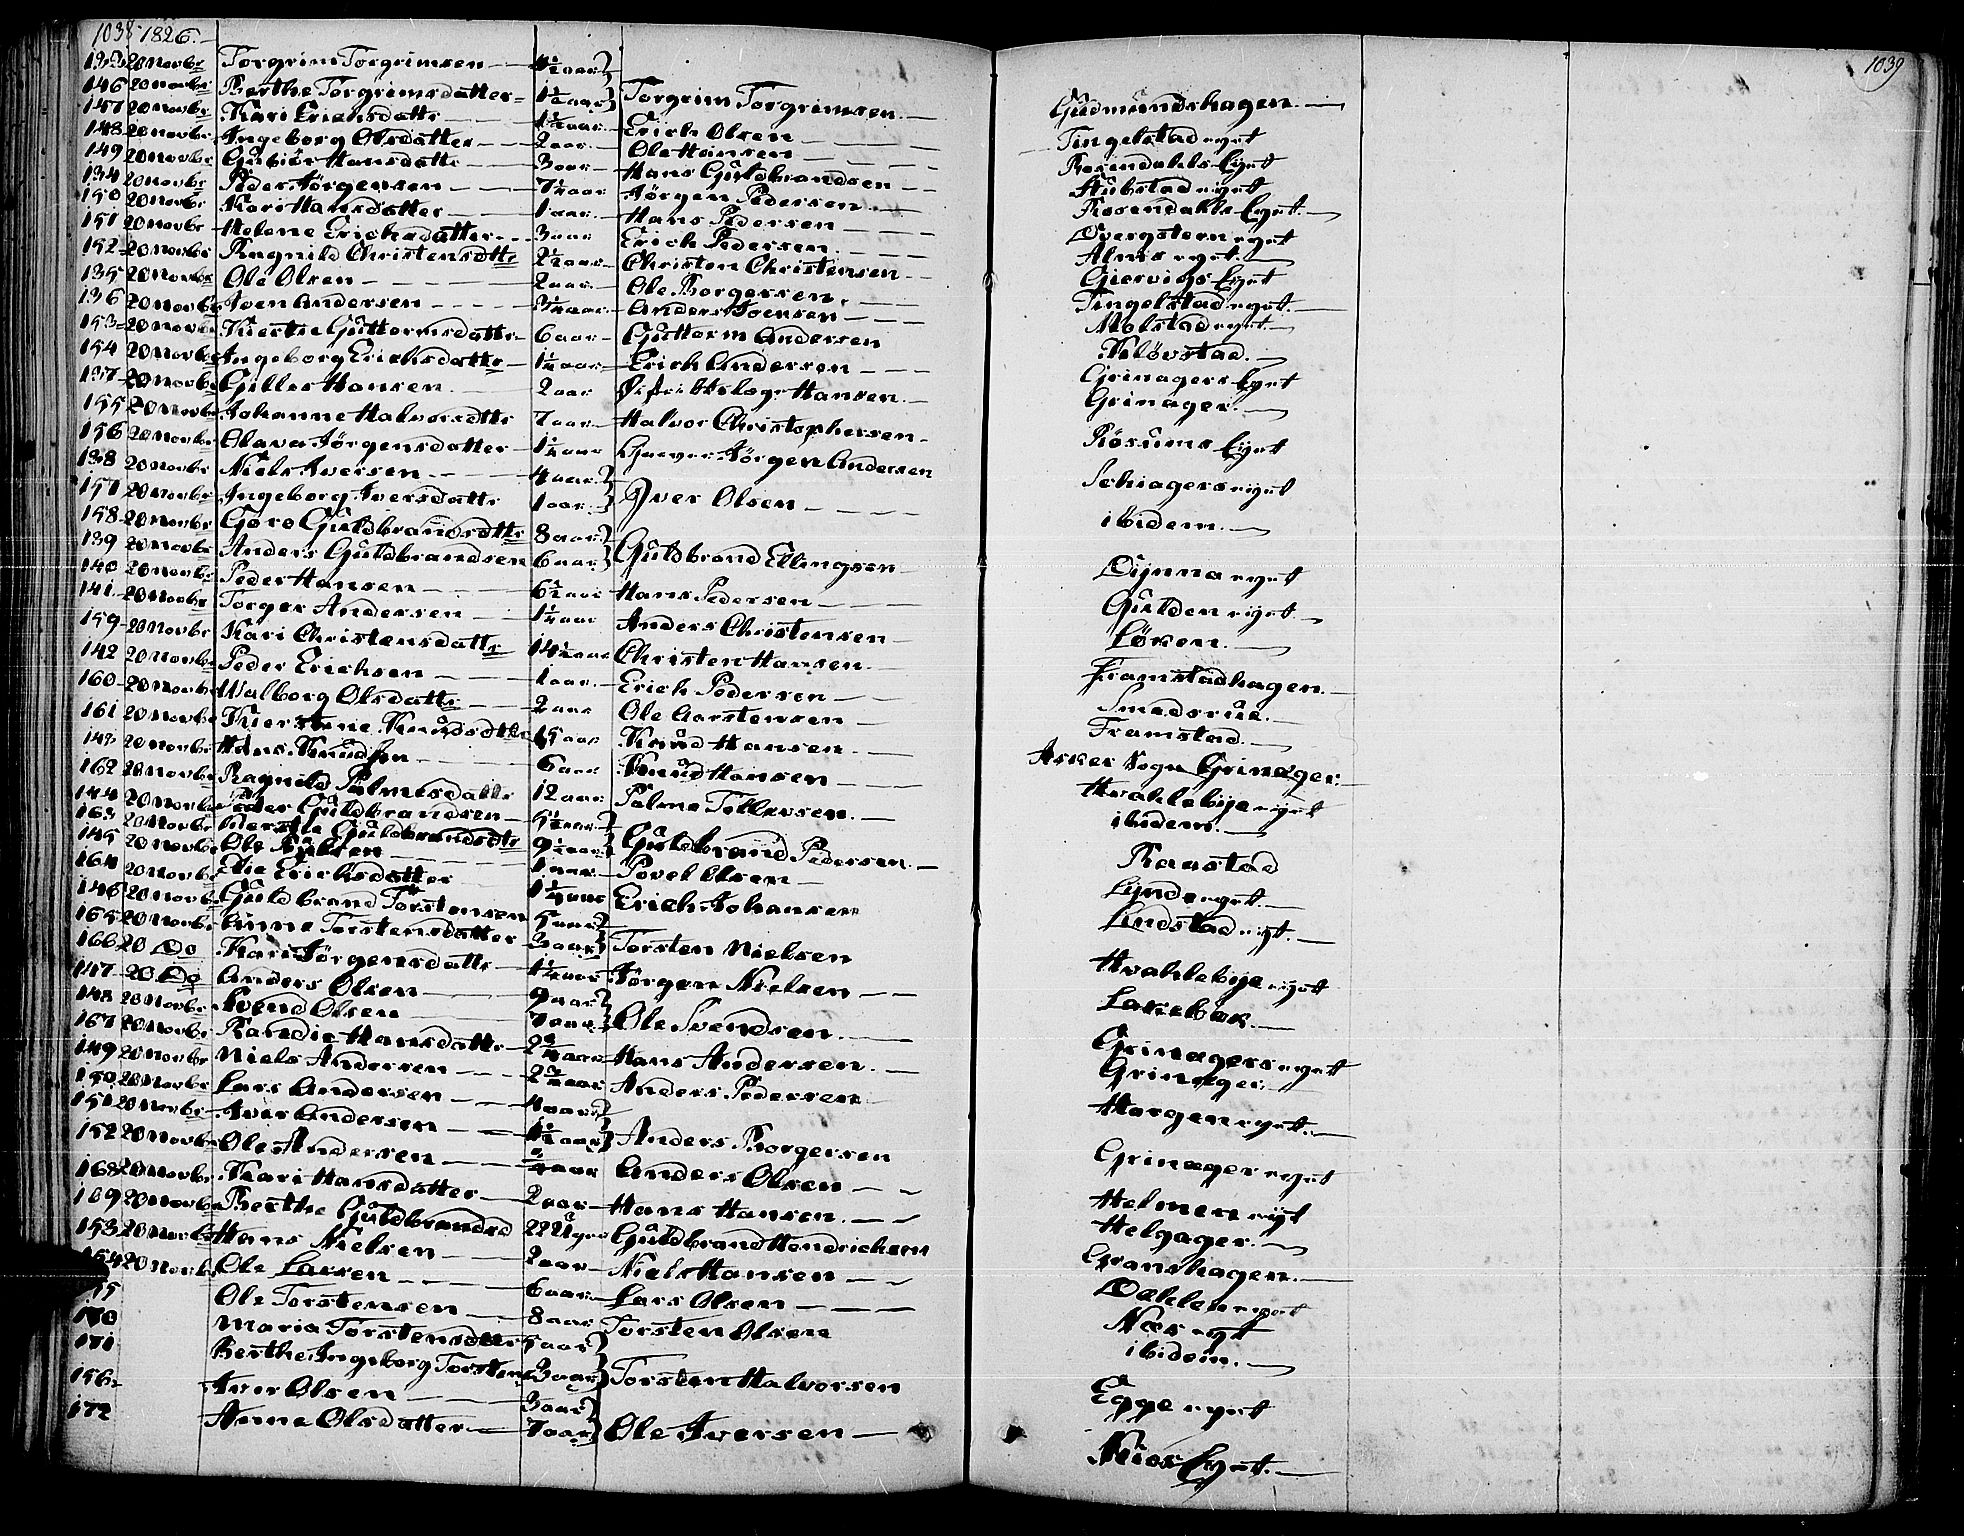 1038 1826.
133 20 Novbr Torgrim Torgrimsen 4½ aar
146 20 Novbr Berthe Torgrimsdatter 1½ aar Torgrim Torgrimsen
147 20 Novbr Kari Erichsdattr 1½ aar Erich Olsen
148 20 Novbr Ingeborg Olsdatter 2 aar Ole Hansen
149 20 Novbr Gubiör Hansdattr 3 aar Hans Guldbrandsen
134 20 Novbr Peder Jörgensen 7½ aar Jörgen Pedersen
150 20 Novbr Kari Hansdatter 1 aar Hans Pedersen
151 20 Novbr Helene Erichsdatter 3 aar Erich Pedersen
152 20 Novbr Ragnild Christensdttr 2½ aar Christen Christensen
135 20 Novbr Ole Olsen 2 aar Ole Borgersen
136 20 Novbr Joen Andersen 3½ aar Anders Joensen
153 20 Novbr Kierstie Guttormsdattr 6 aar Guttorm Andersen
154 20 Novbr Ingeborg Erichsdattr 1½ aar Erich Andersen
137 20 Novbr Giller Hansen 2 aar Hansen
155 20 Novbr Johanne Halvorsdttr 7 aar Halvor Christophersen
156 20 Novbr Olava Jörgensdatter 1½ aar Jörgen Andersen
138 20 Novbr Niels Iversen 4 aar
157 20 Novbr Ingeborg Iversdattr 1 aar Iver Olsen
158 20 Novbr Goro Guldbrandsdttr 8 aar
139 20 Novbr Anders Guldbrandsen 6 aar Guldbrand Ellingsen
140 20 Novbr Peder Hansen 6½ aar Hans Pedersen
141 20 Novbr Torger Andersen 1½ aar Anders Christensen
159 20 Novbr Kari Christensdattr 14½ aar Christen Hansen
142 20 Novbr Peder Erichsen 1 aar Erich Pedersen
160 20 Novbr Walborg Olsdattr 2 aar Ole Carstensen
161 20 Novbr Kierstene Knudsdttr 15 aar Knud Hansen
143 20 Novbr Hans Knudsen 6 aar Knud Hansen
162 20 Novbr Ragnild Palmesdattr 12 aar Palme Tollevsen
144 20 Novbr Peder Guldbrandsen 5½ aar
163 20 Novbr Kierstie Guldbrandsdttr 9½ aar Guldbrand Pedersen
145 20 Novbr Ole 1 aar Povel Olsen
164 20 Novbr Elie Erichsdatter 1½ aar Erich Johansen
146 20 Novbr Guldbrand Torstensen 5 aar
165 20 Novbr Anne Torstensdatter 3 aar Torsten Nielsen
166 20 Do Kari Jörgensdattr 1½ aar Jörgen Nielsen
147 20 Do Anders Olsen 9 aar
148 20 Novbr Svend Olsen 7 aar Ole Svendsen
167 20 Novbr Randie Hansdattr Hans Andersen
149 20 Novbr Niels Andersen Anders Pedersen
150 20 Novbr Lars Andersen 4 aar
151 20 Novbr Iver Andersen 1½ aar Anders Borgersen
152 20 Novbr Ole Andersen aar Anders Olsen
168 20 Novbr Kari Hansdatter 2 aar Hans Hansen
169 20 Novbr Berthe Guldbrandsd 22 Uger Guldbrand Hendrichsen
153 20 Novbr Hans Nielsen 2 aar Niels Hansen
154 20 Novbr Ole Larsen 6 aar Lars Olsen
Ole Torstensen 8 aar Torsten Olsen
170 Maria Torstensdttr 5 aar
171 Berthe Ingeborg Torsten 3 aar Torsten Halvorsen
156 Iver Olsen 3 aar
172 Anne Olsdatter 7 aar Ole Iversen
1039
Gudmundshagen.
Tingelstad eyet
Rosendahls Eyet
Stubstad eyet
Rosendahls Eyet.
Dvergsten eyet
Alms eyet.
Giervigs Eyet
Tingelstad eyet.
Molstad eyet.
Klövstad.
Grinagers Eyet
Grinager.
Rösums Eyet
Schiagers eyet
ibidem.
Dynna eyet
Gulden eyet.
Löken.
Framstadhagen.
Smedsrue.
Framstad.
Asker Sogn Grinager.
Hvahlebye eyet
ibidem.
Raastad
Lynds eyet.
Lindstad eyt.
Hvahlebye eyet
Larebak.
Grinagers eyet
Grinager.
Horgen eyet.
Grinager eyet
Helmen eyt
Helgager.
Granshagen.
Dahlen eyet
Næs eyet
ibidem.
Egge eyet
Eyet.